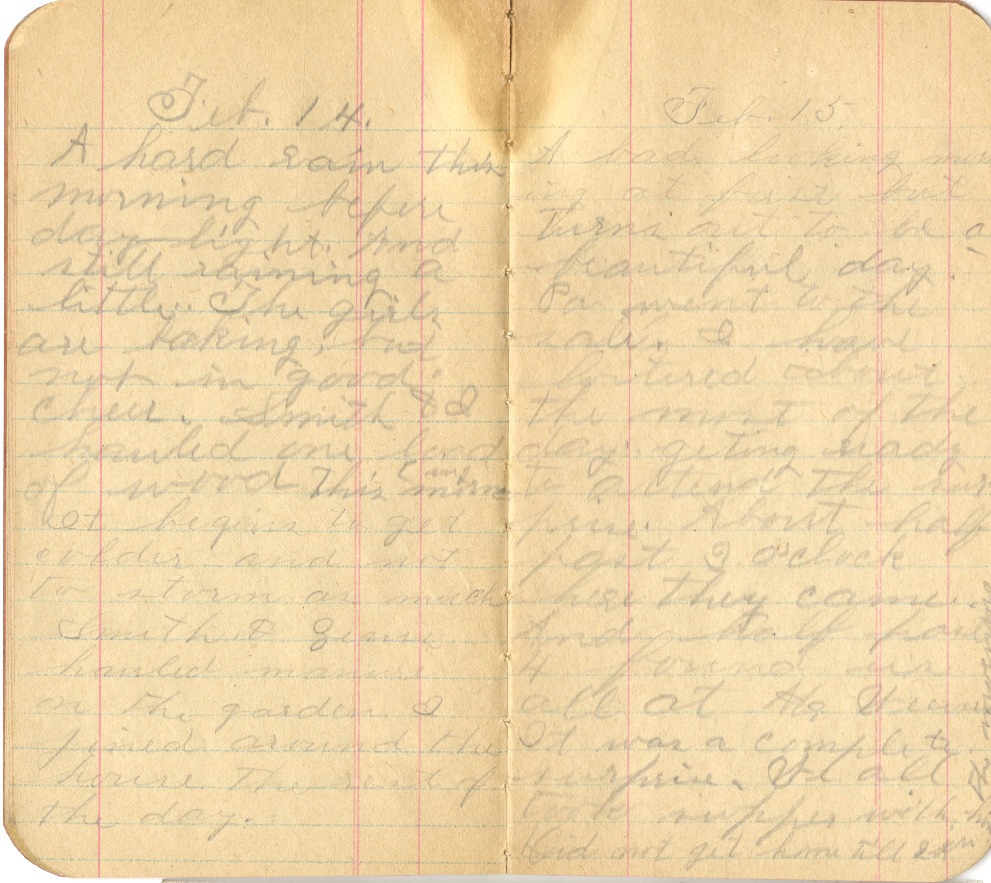 Feb. 14.
A hard rain this
morning before
day light. And
still raining a
little. The girls
are taking, but
not in good
cheer. Smith & I
hauled one load
of wood this morning
It begins to get
colder and not
to storm as much
Smith &
hauled manure
on the garden I
around the
house the rest of
the day.
Feb. 15.
A bad looking morn
ing at first but
turns out to be a
beautiful day.
Pa went to the
sale. I have
loitered about
the most of the
day. geting ready
to attend the sur
prise. About half
past 3 o'clock
here they came.
And half past
4 found us
all at
It was a complete
surprise. We all
took supper with
Did not get home till